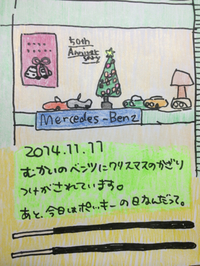 50th
Anniversary
Mercedes-Benz
2014.11.11
むかいのベンツにクリスマスのかざり
つけがされています。
あと、今日はポッキーの日なんだって。